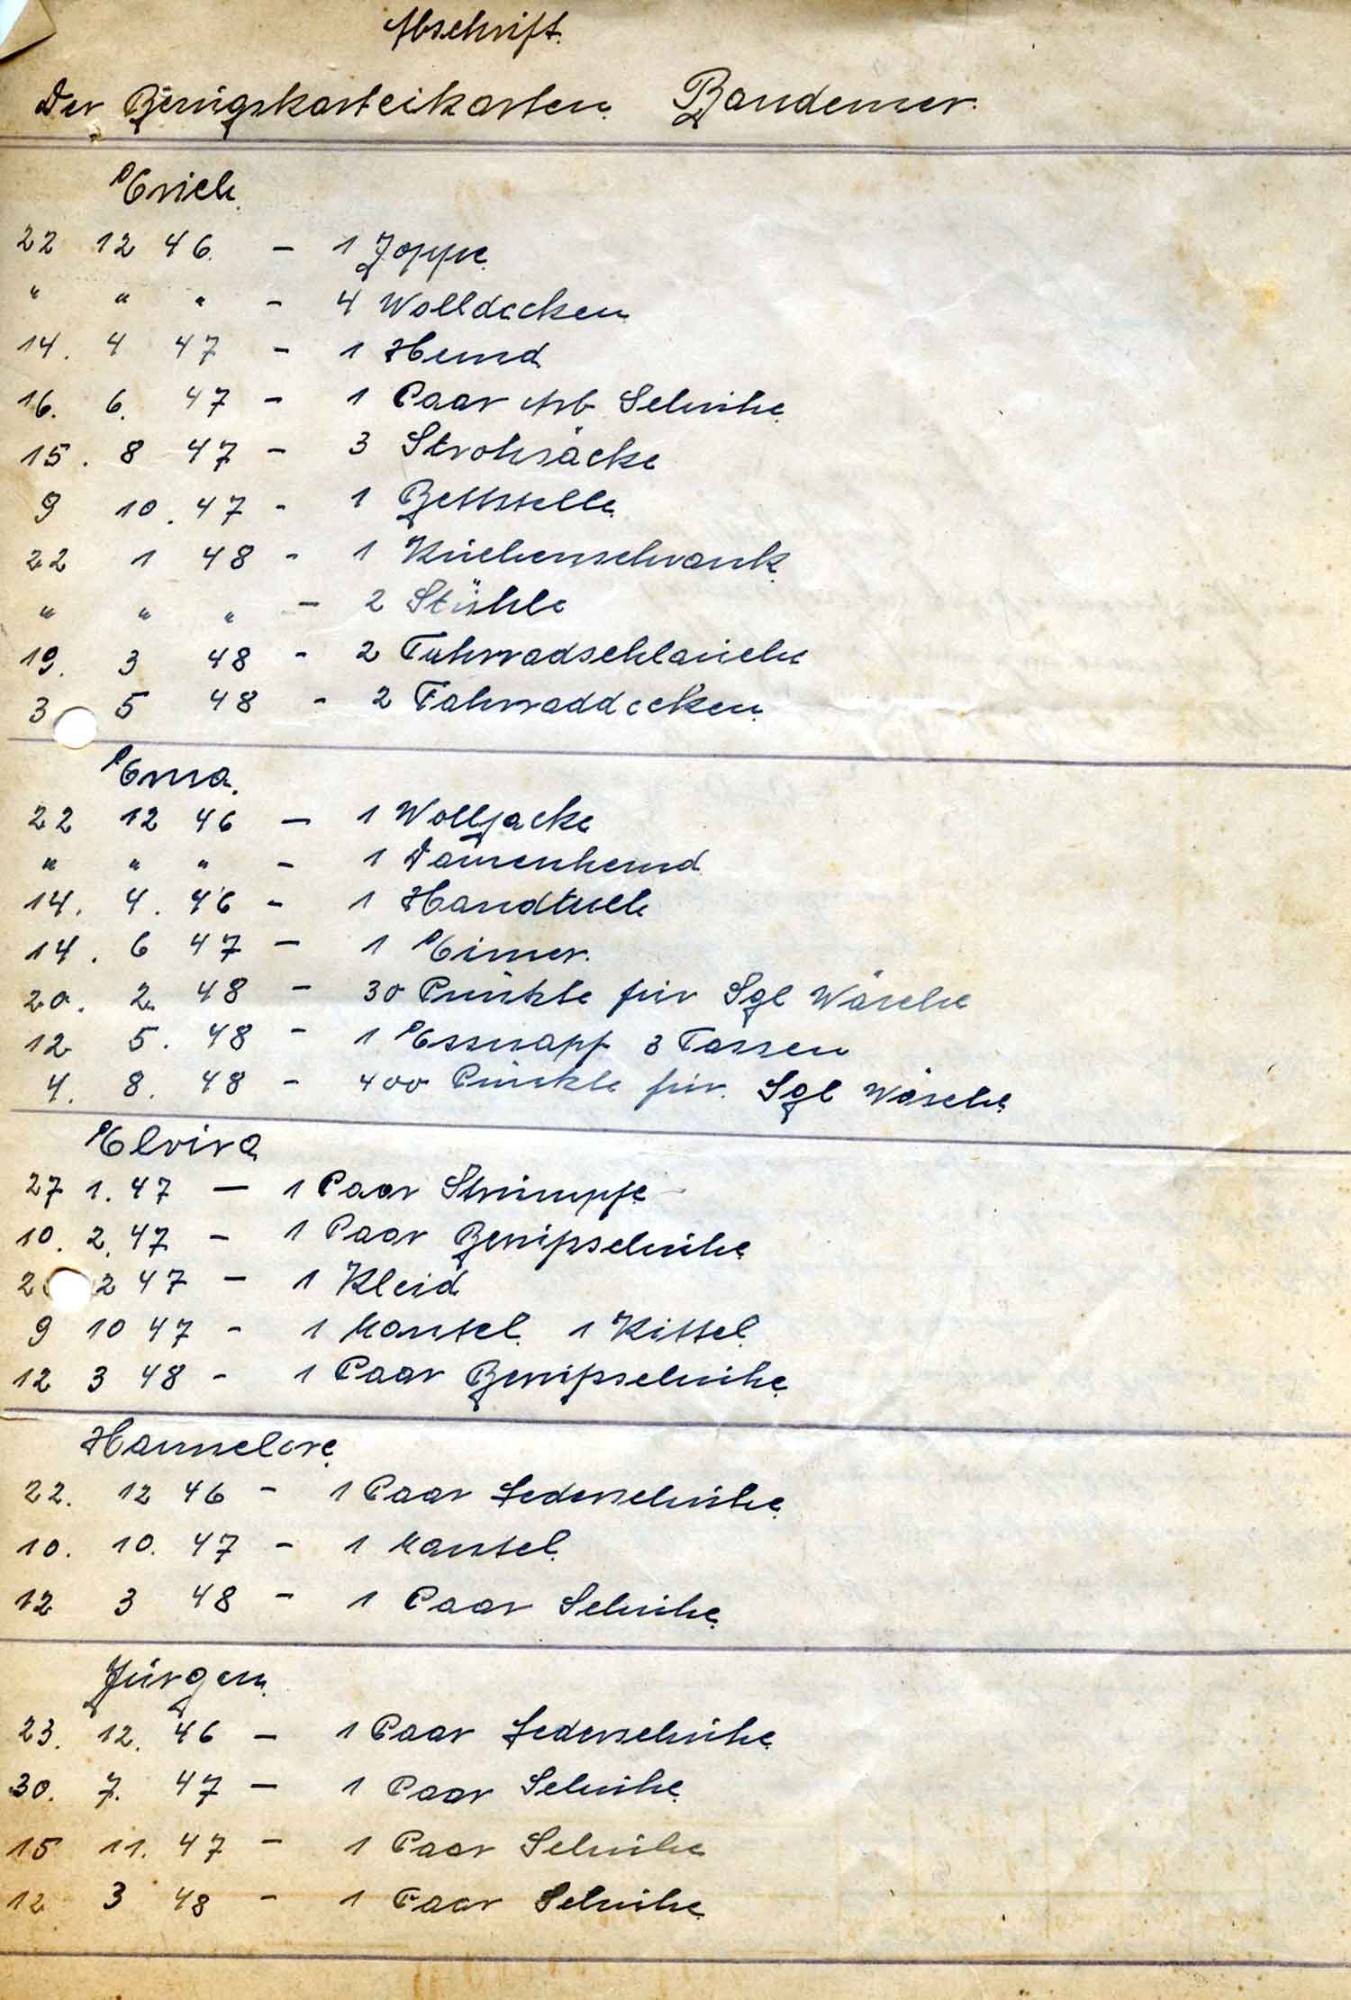 Abschrift.
Der Bezugskarteikarten Bandemer.
Erich.
22 12 46. – 1 Joppe.
" " " – 4 Wolldecken
14. 4 47 – 1 Hemd
16. 6. 47 – 1 Paar Arb Schuhe
15. 8 47 – 3 Strohsäcke
9 10. 47 – 1 Bettstelle
22 1 48 – 1 Küchenschrank
" " " – 2 Stühle
19. 3 48 – 2 Fahrradschläuche
3 5 48 – 2 Fahrraddecken
Erna.
22 12 46 – 1 Wolljacke
" " " – 1 Damenhemd
14. 4. 46 – 1 Handtuch
14. 6 47 – 1 Eimer.
20. 2. 48 – 30 Punkte für Sgl Wäsche
12 5. 48 – 1 Essnapf 3 Tassen
4. 8. 48 – 400 Punkte für. Sgl Wäsche
Elvira
27 1. 47 – 1 Paar Strümpfe
10. 2. 47 – 1 Paar Berufsschuhe
2 2 47 – 1 Kleid
9 10 47 – 1 Mantel 1 Kittel
12 3 48 – 1 Paar Berufsschuhe
Hannelore
22. 12 46 – 1 Paar Lederschuhe
10. 10. 47 – 1 Mantel
12 3 48 – 1 Paar Schuhe
Jürgen
23. 12. 46 – 1 Paar Lederschuhe
30. 7. 47 – 1 Paar Schuhe
15 11. 47 – 1 Paar Schuhe
12 3 48 – 1 Paar Schuhe